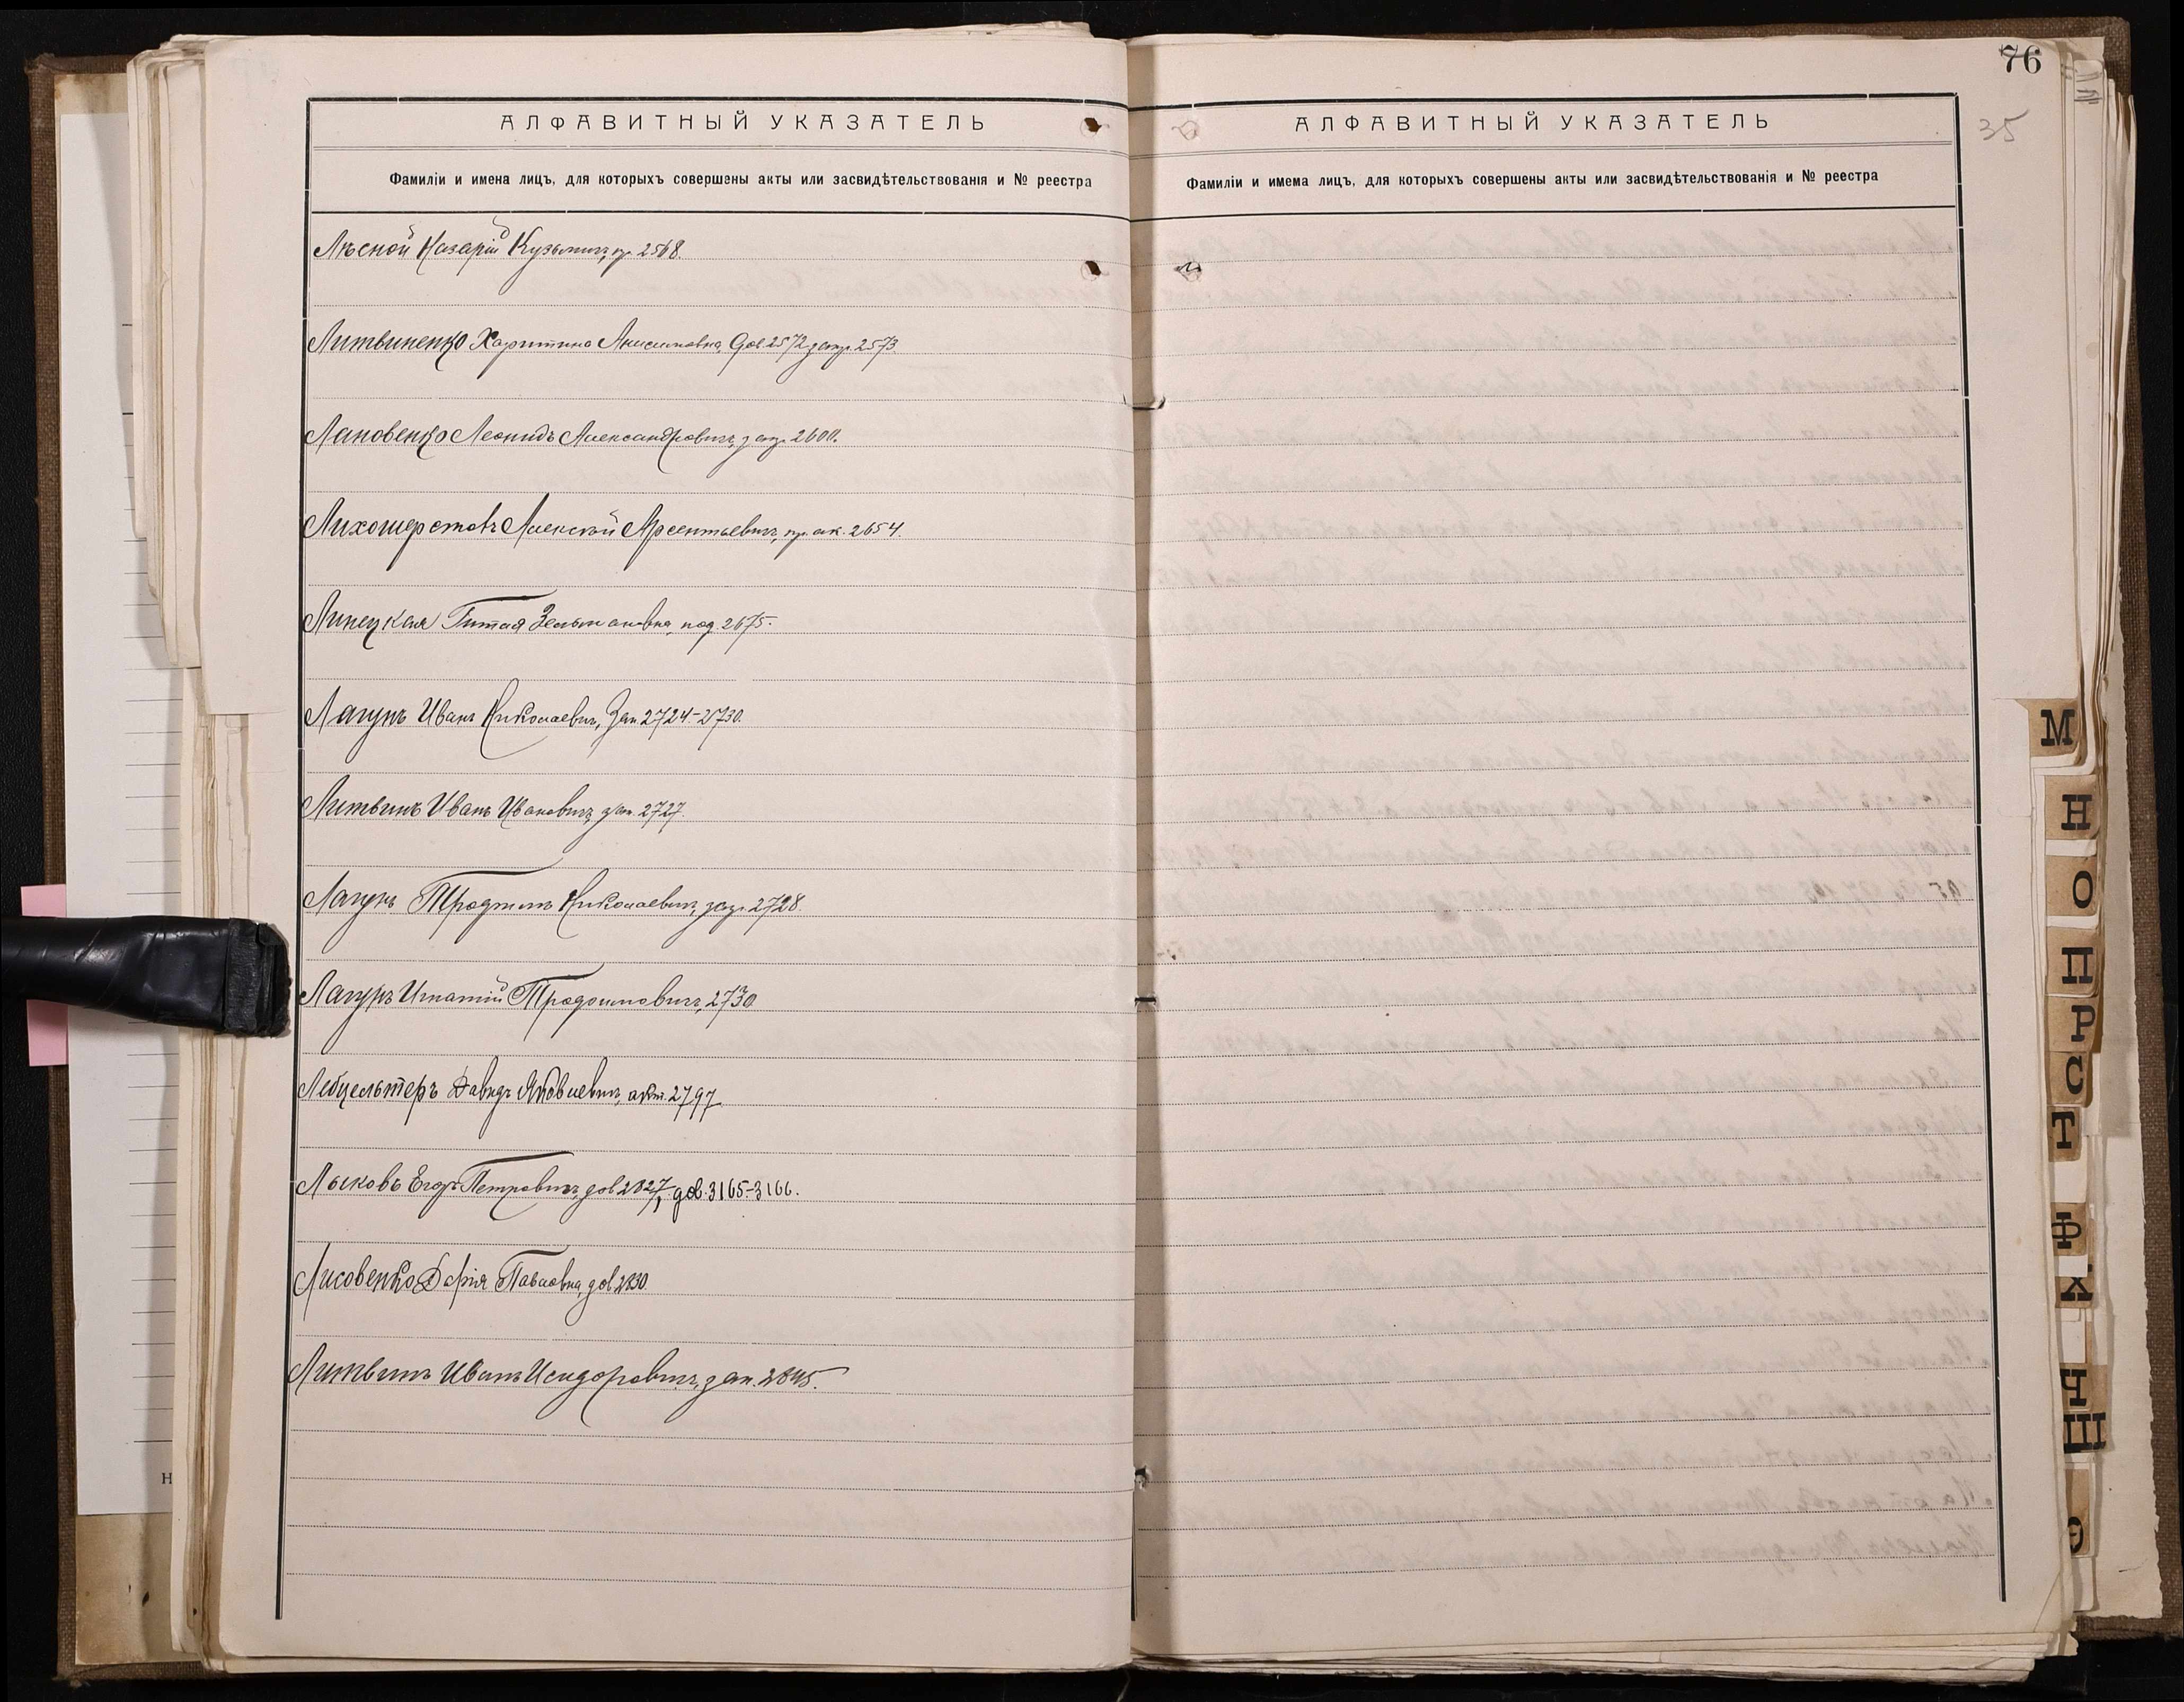 76
35
АЛФАВИТНЫЙ УКАЗАТЕЛЬ
Фамиліи и имена лицъ, для которыхъ совершены акты или засвидѣтельствованія и № реестра
Лѣсной Назарій Кузьмичъ, пр. 2568.
Литвиненко Харитина Анисимовна, дов. 2572 запр. 2573.
Лановенко Леонидъ Александровичъ, запр. 2600.
Лихошерстовъ Алексѣй Арсентьевичъ, пр. ак. 2654.
Липецкая Гитая Зельмановна, под. 2675.
Лагунъ Иванъ Николаевич, Зап. 2724-2730.
Литвинъ Иванъ Ивановичъ, зап. 2727.
Лагунъ Николаевичъ, запр. 2728.
Лагунъ Игнатій 2730
Лебцельтеръ Давидъ акт. 2797
Лысковъ Егоръ Петровичъ, дов 2827, дов. 3165-3166.
Лисовенко Дарія Павловна, дов 2830.
Литвинъ Иванъ Исидоровичъ, зап. 2845.
АЛФАВИТНЫЙ УКАЗАТЕЛЬ
Фамиліи и имема лицъ, для которыхъ совершены акты или засвидѣтельствованія и № реестра
М
Н
О
П
Р
С
Т
Ф
Х
Ч
Ш
Э
Н